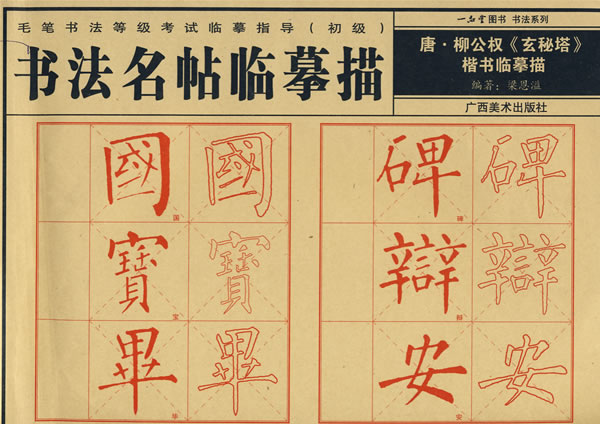 毛笔书法等级考试临摹指导(初级)
书法名帖临摹描
一名堂图书 书法系列
唐·柳公权《玄秘塔》
楷书临摹描
编著:梁恩溢
广西美术出版社
國 國 碑 碑
国 碑
寶 寶 辯 辯
宝 辩
畢 畢 安 安
毕 安